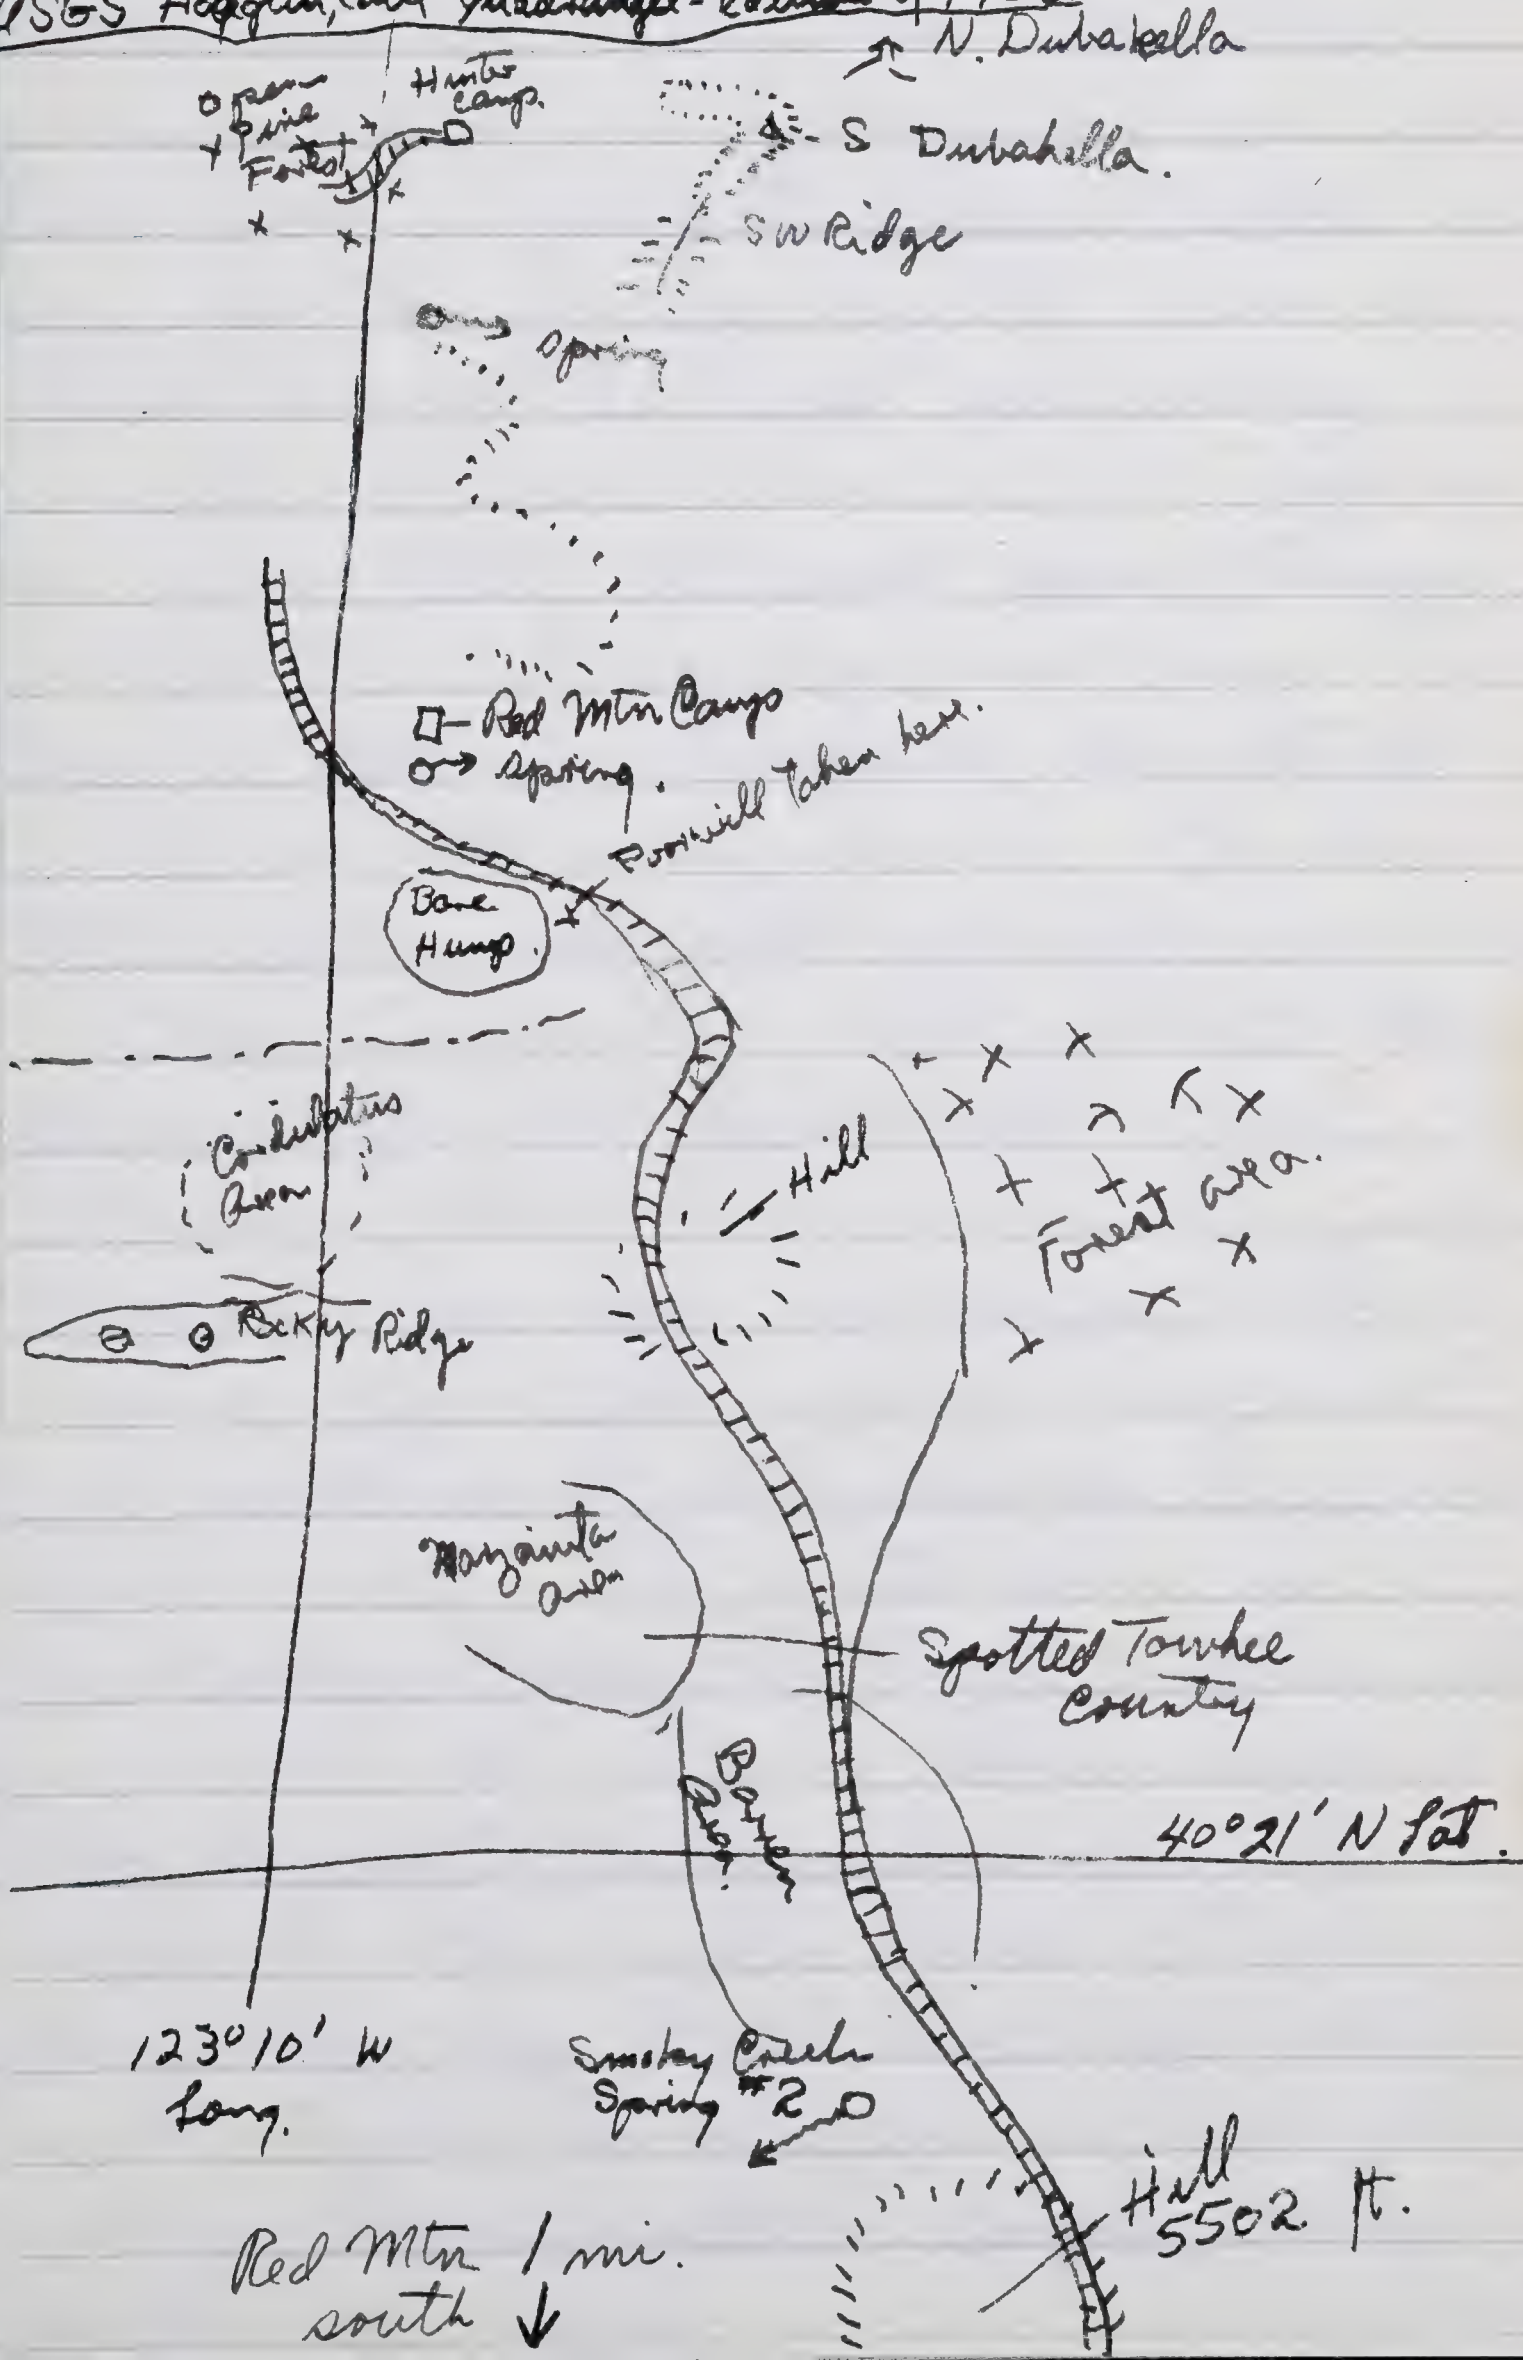 USGS
N. Dubakella
Open
Pine
Forest
Hunter
Camp.
S Dubakella.
SW Ridge
Spring
Red Mtn Camp
Spring.
Poorwill Taken here.
Bare
Hump.
Cordulatus
Area
Hill
Forest area.
Rocky Ridge
Manzanita
area
Spotted Towhee
Country
Barren
Area.
40°21' N Lat.
123°10' W
Long.
Smoky Creek
Spring #2
Hill
5502 ft.
Red Mtn 1 mi.
south